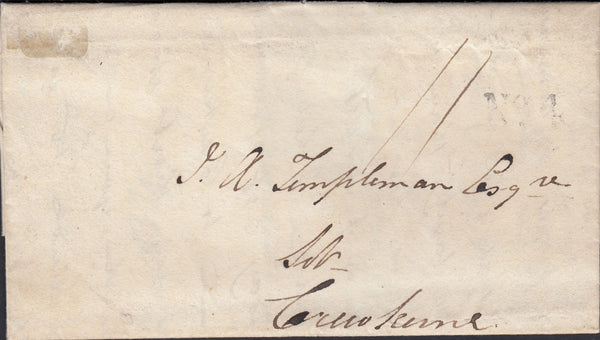 11
No. 4
J. A. Templeman Esqre
Solr
Crewkerne